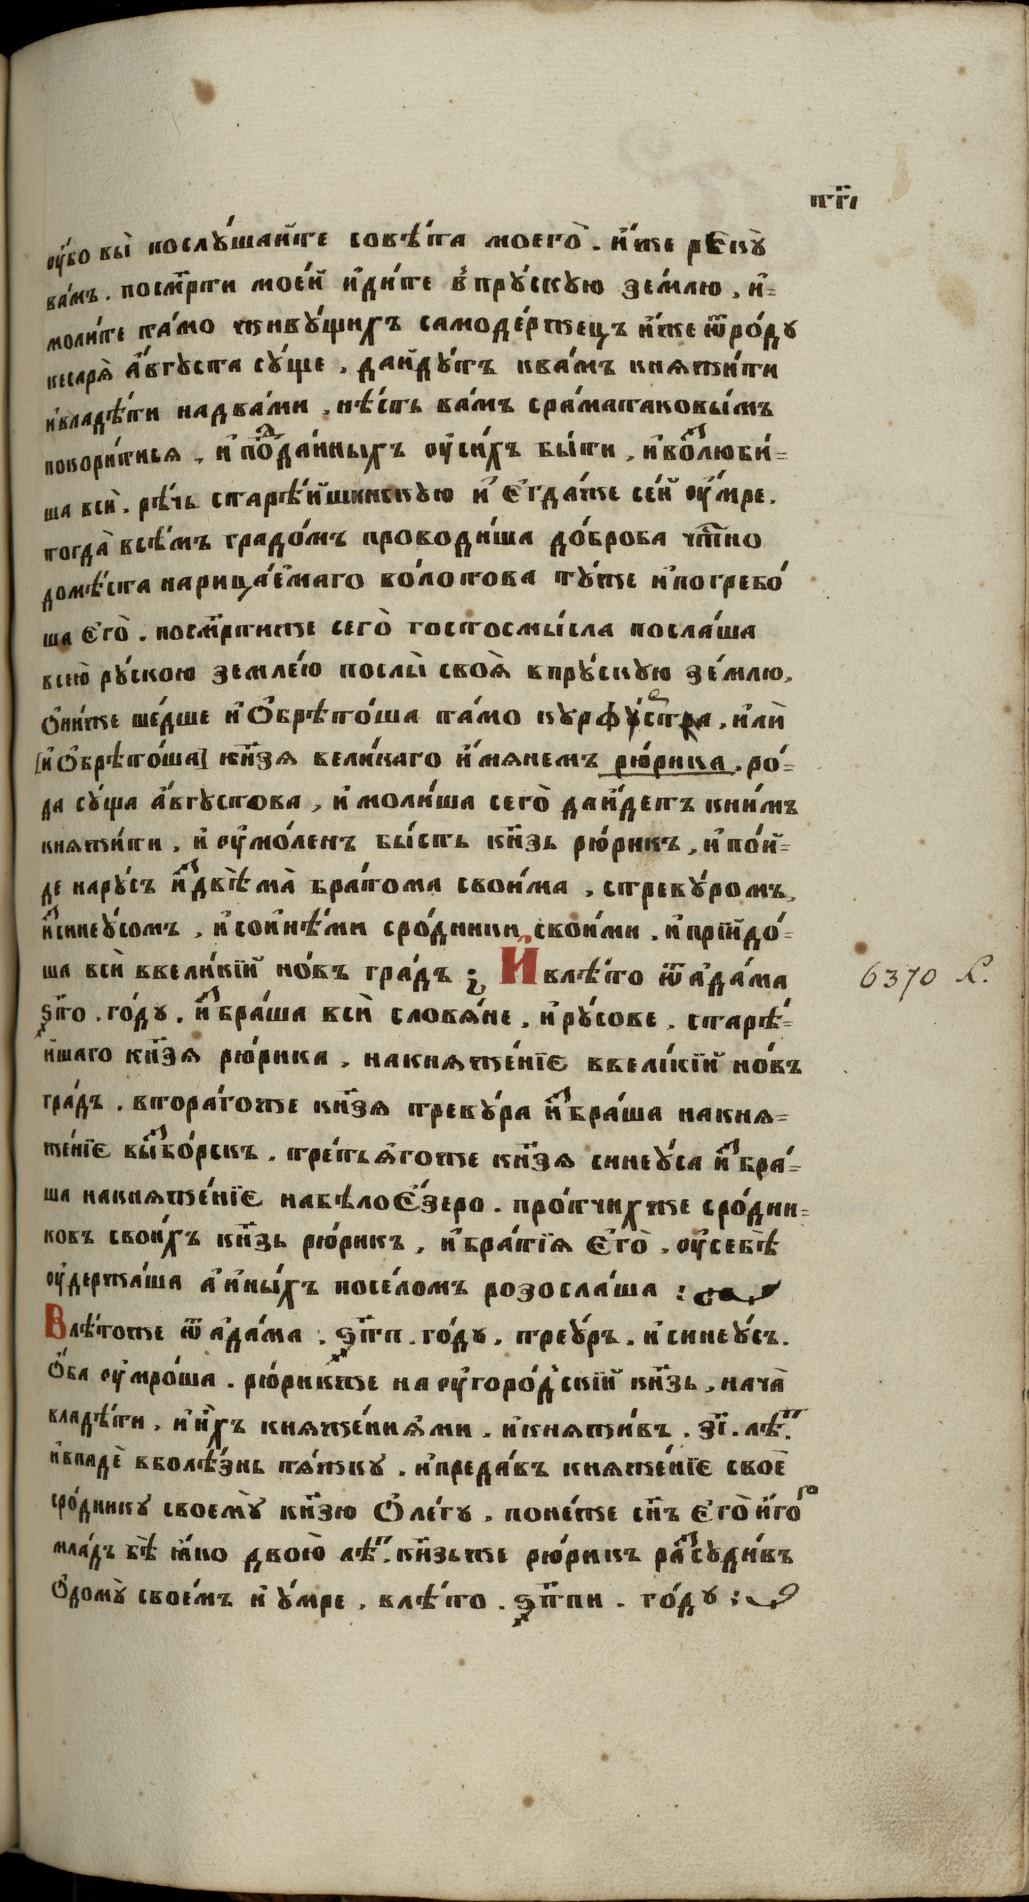 п҃г
оу҆́бо вы̀ послꙋ́шайте совѣ́та моегѡ̀. и҆́же рекꙋ̀
ва́мъ. посм҃рти мое́й и҆ди́те в̾прꙋ́скꙋю зе́млю, и҆-
моли́те та́мо живꙋ́щихъ самоде́ржецъ и҆́же ѿро́дꙋ
кесарѧ̀ а҆́вгꙋста сꙋ́ще, даи҆дꙋ́тъ ква́мъ кнѧжи́ти
и҆владѣ́ти надва́ми, нѣ́сть ва́мъ сра́матаковы́мъ
покори́тисѧ, и҆ по́дда́нныхъ оу҆си́хъ бы́ти, и҆возлюби́-
ша всѝ. рѣ́чь старѣ́йшинскꙋю и҆ є҆гда́же се́й оу҆́мре.
тогда̀ всѣ́мъ градо́мъ проводи́ша до́броѣа чт҃но
домѣ́ста нарица́емаго во́лотова тꙋ́же и҆погребо́
ша є҆го̀. посм҃ртиже сего̀ гостосмы́сла посла́ша
все́ю рꙋ́скою земле́ю послы̀ своѧ̀ впрꙋ́скꙋю зе́млю,
ѻ҆ни́же ше́дше и҆ѻ҆брѣто́ша та́мо кꙋрфѵ́стра, и҆лѝ
[и҆ѻ҆брѣто́ша] кн҃зѧ вели́каго и҆́мѧнемъ рю́рика, ро́-
да сꙋ́ща а҆́вгꙋстова, и҆ моли́ша сего̀ даи҆́детъ кни́мъ
кнѧжи́ти, и҆ оу҆мо́ленъ бы́сть кн҃зь рю́рикъ, и҆ по́й-
де нарꙋ́съ и҆здвѣма̀ бра́тома свои́ма, стрекꙋ́ромъ,
и҆ссинеꙋ́сомъ, и҆ сои҆нѣ́ми сро́дники свои́ми. и҆ прїйдо́-
ша всѝ ввели́кїй но́въ гра́дъ ; И҆влѣ́то ѿ а҆да́ма
҂ѕ҃то. го́дꙋ. и҆збра́ша всѝ словѧ́не, и҆ рꙋ́сове, старѣ́-
йшаго кн҃зѧ рю́рика, накнѧже́нїе ввели́кїй но́въ
гра́дъ. втора́гоже кн҃зѧ трекꙋ́ра и҆збра́ша накнѧ-
же́нїе вы҆збо́рскъ. тре́тьѧгоже кн҃зѧ синеꙋ́са и҆збра́-
ша накнѧже́нїе набѣлоє҆́зеро. про́тчихже сро́дни-
ковъ свои́хъ кн҃зь рю́рикъ, и҆ бра́тїѧ є҆го̀, оу҆себѣ̀
оу҆держа́ша а҆ и҆ны́хъ посе́ломъ розосла́ша :
Влѣ́тоже ѿ а҆да́ма. ҂ѕ҃тп. го́дꙋ. треꙋ́ръ. и҆ синеꙋ́съ.
ѻ҆́ба оу҆мро́ша. рю́рикже на оу҆горо́дскїй кн҃зь, нача̀
владѣ́ти, и҆ и҆́хъ кнѧже́ниѧми. и҆кнѧжи́въ. з҃і. лѣт.
и҆впадѐ вболѣ́знь тѧ́жкꙋ. и҆преда́въ кнѧже́нїе своѐ
сро́дникꙋ своемꙋ̀ кн҃зю ѻ҆ле́гꙋ, поне́же сн҃ъ є҆го̀ и҆́гого
мла́дъ бѣ̀ ꙗ҆́ко двою̀ лѣт. кн҃зьже рю́рикъ разсꙋди́въ
ѻ҆домꙋ̀ свое́мъ и҆ ꙋ́мре, влѣ́то. ҂ѕ҃тпи. го́дꙋ :
6370 L.